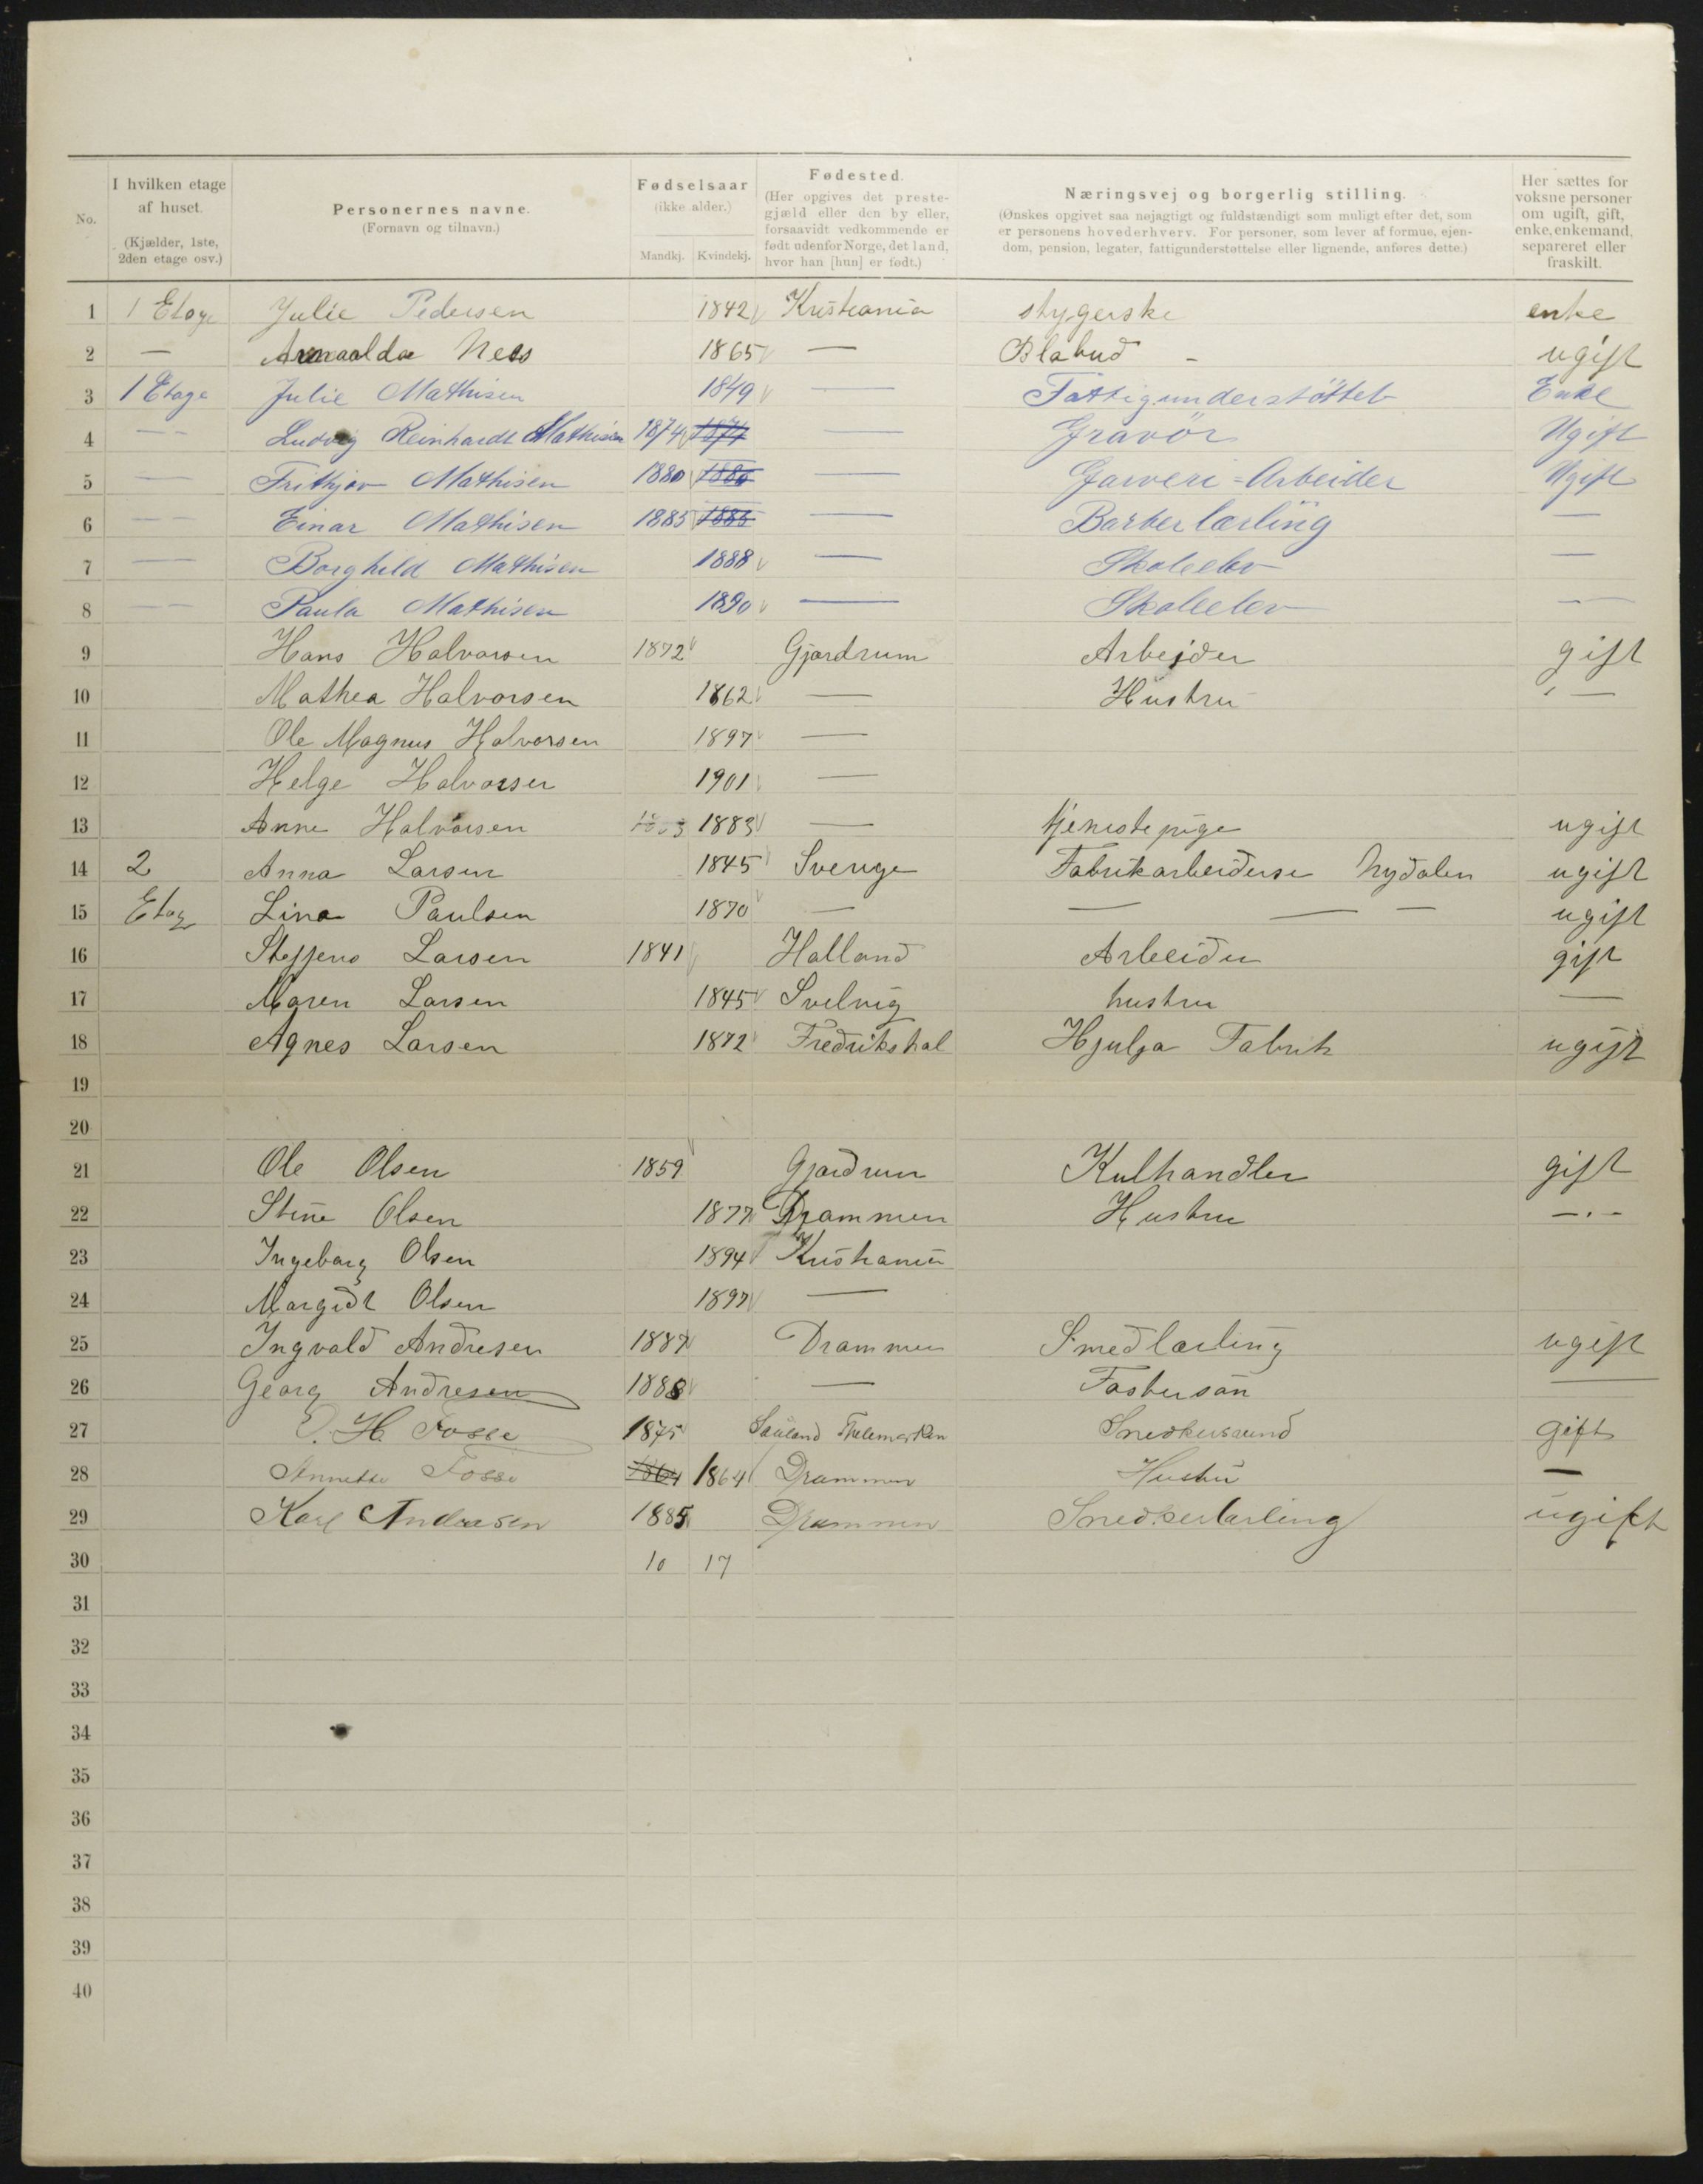 No.
I hvilken etage af huset. (Kjælder, 1ste, 2den etage osv.)
Personernes navne. (Fornavn og tilnavn.)
Fødselsaar (ikke alder.) Mandkj. Kvindekj.
Fødested. (Her opgives det prestegjæld eller den by eller, forsaavidt vedkommende er født udenfor Norge, det land, hvor han [hun] er født.)
Næringsvej og borgerlig stilling. (Ønskes opgivet saa nøjagtigt og fuldstændigt som muligt efter det, som er personens hovederhverv. For personer, som lever af formue, ejendom, pension, legater, fattigunderstøttelse eller lignende, anføres dette.)
Her sættes for voksne personer om ugift, gift, enke, enkemand, separeret eller fraskilt.
1 1 Etage Julie Pedersen 1842 Kristiania stygerske enke
2 — Ness 1865 — Blabud - ugift
3 1 Etage Julie Mathisen 1849 — Fattigunderstöttet Enke
4 — Ludvig Reinhardt Mathisen 1874 1874 — Gravör Ugift
5 — Frithjov Mathisen 1880 1880 — Garveri=Arbeider Ugift
6 — Einar Mathisen 1885 1885 — Barberlærling —
7 — Borghild Mathisen 1888 — Skoleelev —
8 — Paula Mathisen 1890 — Skoleelev —
9 Hans Halvorsen 1872 Gjerdrum Arbejder gift
10 Mathea Halvorsen 1862 — Hustru —
11 Ole Magnus Halvorsen 1897 —
12 Helge Halvorsen 1901 —
13 Anne Halvorsen 1883 — tjenestepige ugift
14 2 Anna Larsen 1845 Sverige Fabrikarbeiderse Nydalen ugift
15 Etag Lina Paulsen 1870 — — — — ugift
16 Steffens Larsen 1841 Halland Arbeider gift
17 Maren Larsen 1845 Svelvig hustru —
18 Agnes Larsen 1872 Fredrikshal Hjulga Fabrik ugift
19
20
21 Ole Olsen 1859 Gjerdrum Kulhandler gift
22 Stine Olsen 1877 Drammen Hustru —.—
23 Ingeborg Olsen 1894 Kristiania
24 Margidt Olsen 1897 —
25 Ingvald Andresen 1887 Drammen Smedlærling ugift
26 Georg Andresen 1888 — Fostersøn —
27 O. H. Fosse 1875 Sauland Thelemarken Snedkersvend gift
28 Annette Fosse 1864 1864 Drammen Hustru —
29 Karl Andersen 1885 Drammen Snedkerlærling ugift
30 10 17
31
32
33
34
35
36
37
38
39
40